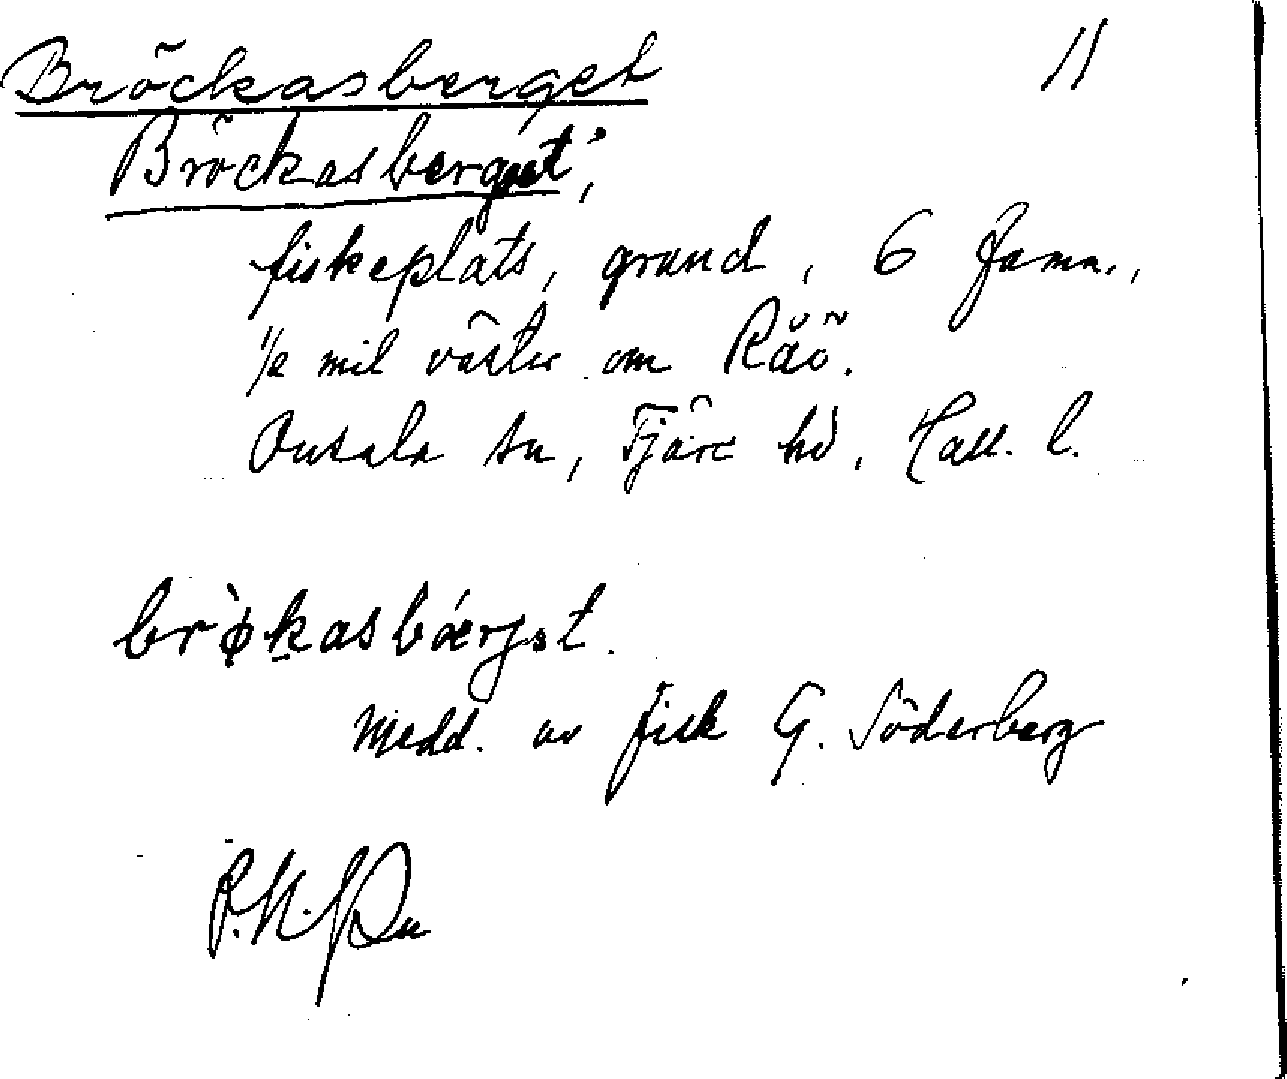 Bröckasberget 11
Bröckasberget;
fiskeplats, grund, 6 famn.,
1/2 mil väster om Råö.
Onsala sn, Fjäre hd, Hall. l.
brø̀kasbǽrjət.
Medd. av fisk G. Söderberg